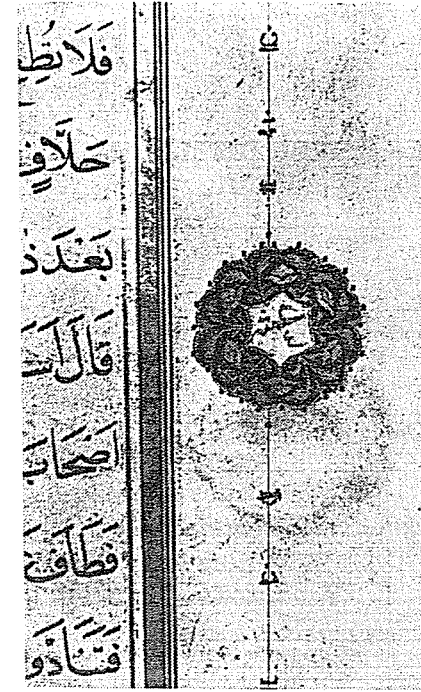 فَلَا تُطِ
حَلَّافٍ
بَعْدَ ذ
قَالَ اَسَ
اَصْحَابَ
فَطَافَ
فَتَنَادَو